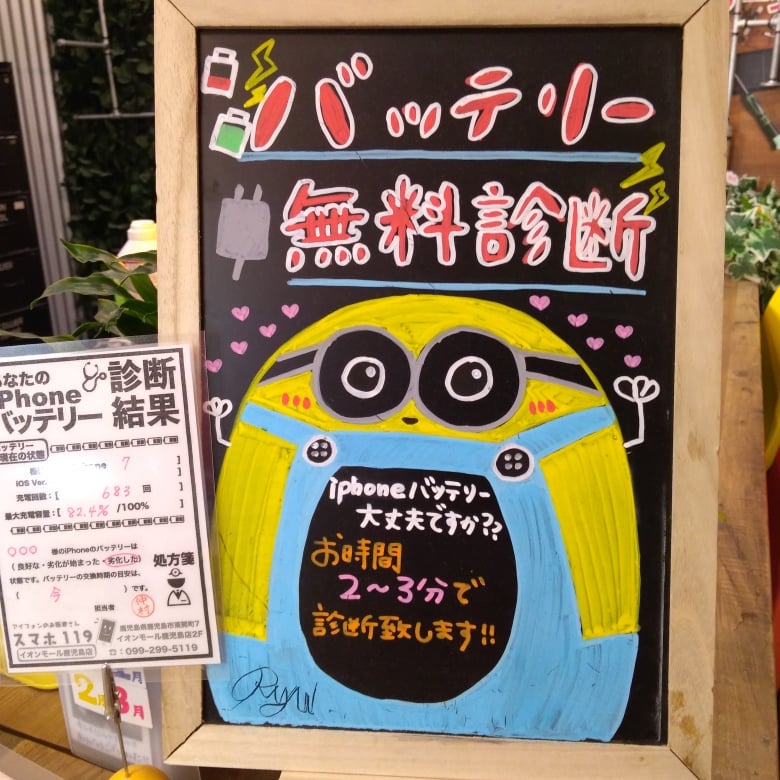 バッテリー
無料診断
iphoneバッテリー
大丈夫ですか??
お時間
2〜3分で
診断致します!!
Ryu
あなたの
iPhone
バッテリー
診断
結果
バッテリー
現在の状態
7 ]
iOS Ver.
充電回数:[ 683 回
最大充電容量:[ 82.4% /100% ]
○○○ 様のiPhoneのバッテリーは
( 良好な・劣化が始まった・劣化した )
状態です。バッテリーの交換時期の目安は、
( 今 )です。
処方箋
担当者 仲村
アイフォンのお医者さん
スマホ 119
イオンモール鹿児島店
鹿児島県鹿児島市東開町7
イオンモール鹿児島店2F
☎:099-299-5119
2月
3月